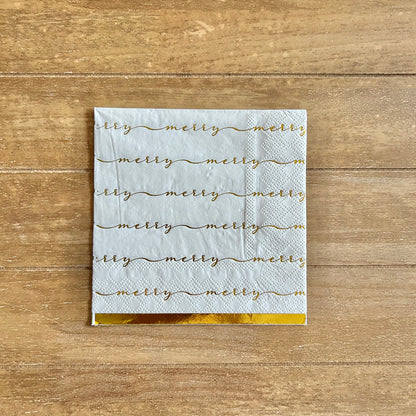 rry merry merry
merry merry m
rry merry merry
merry merry m
rry merry merry
merry merry m